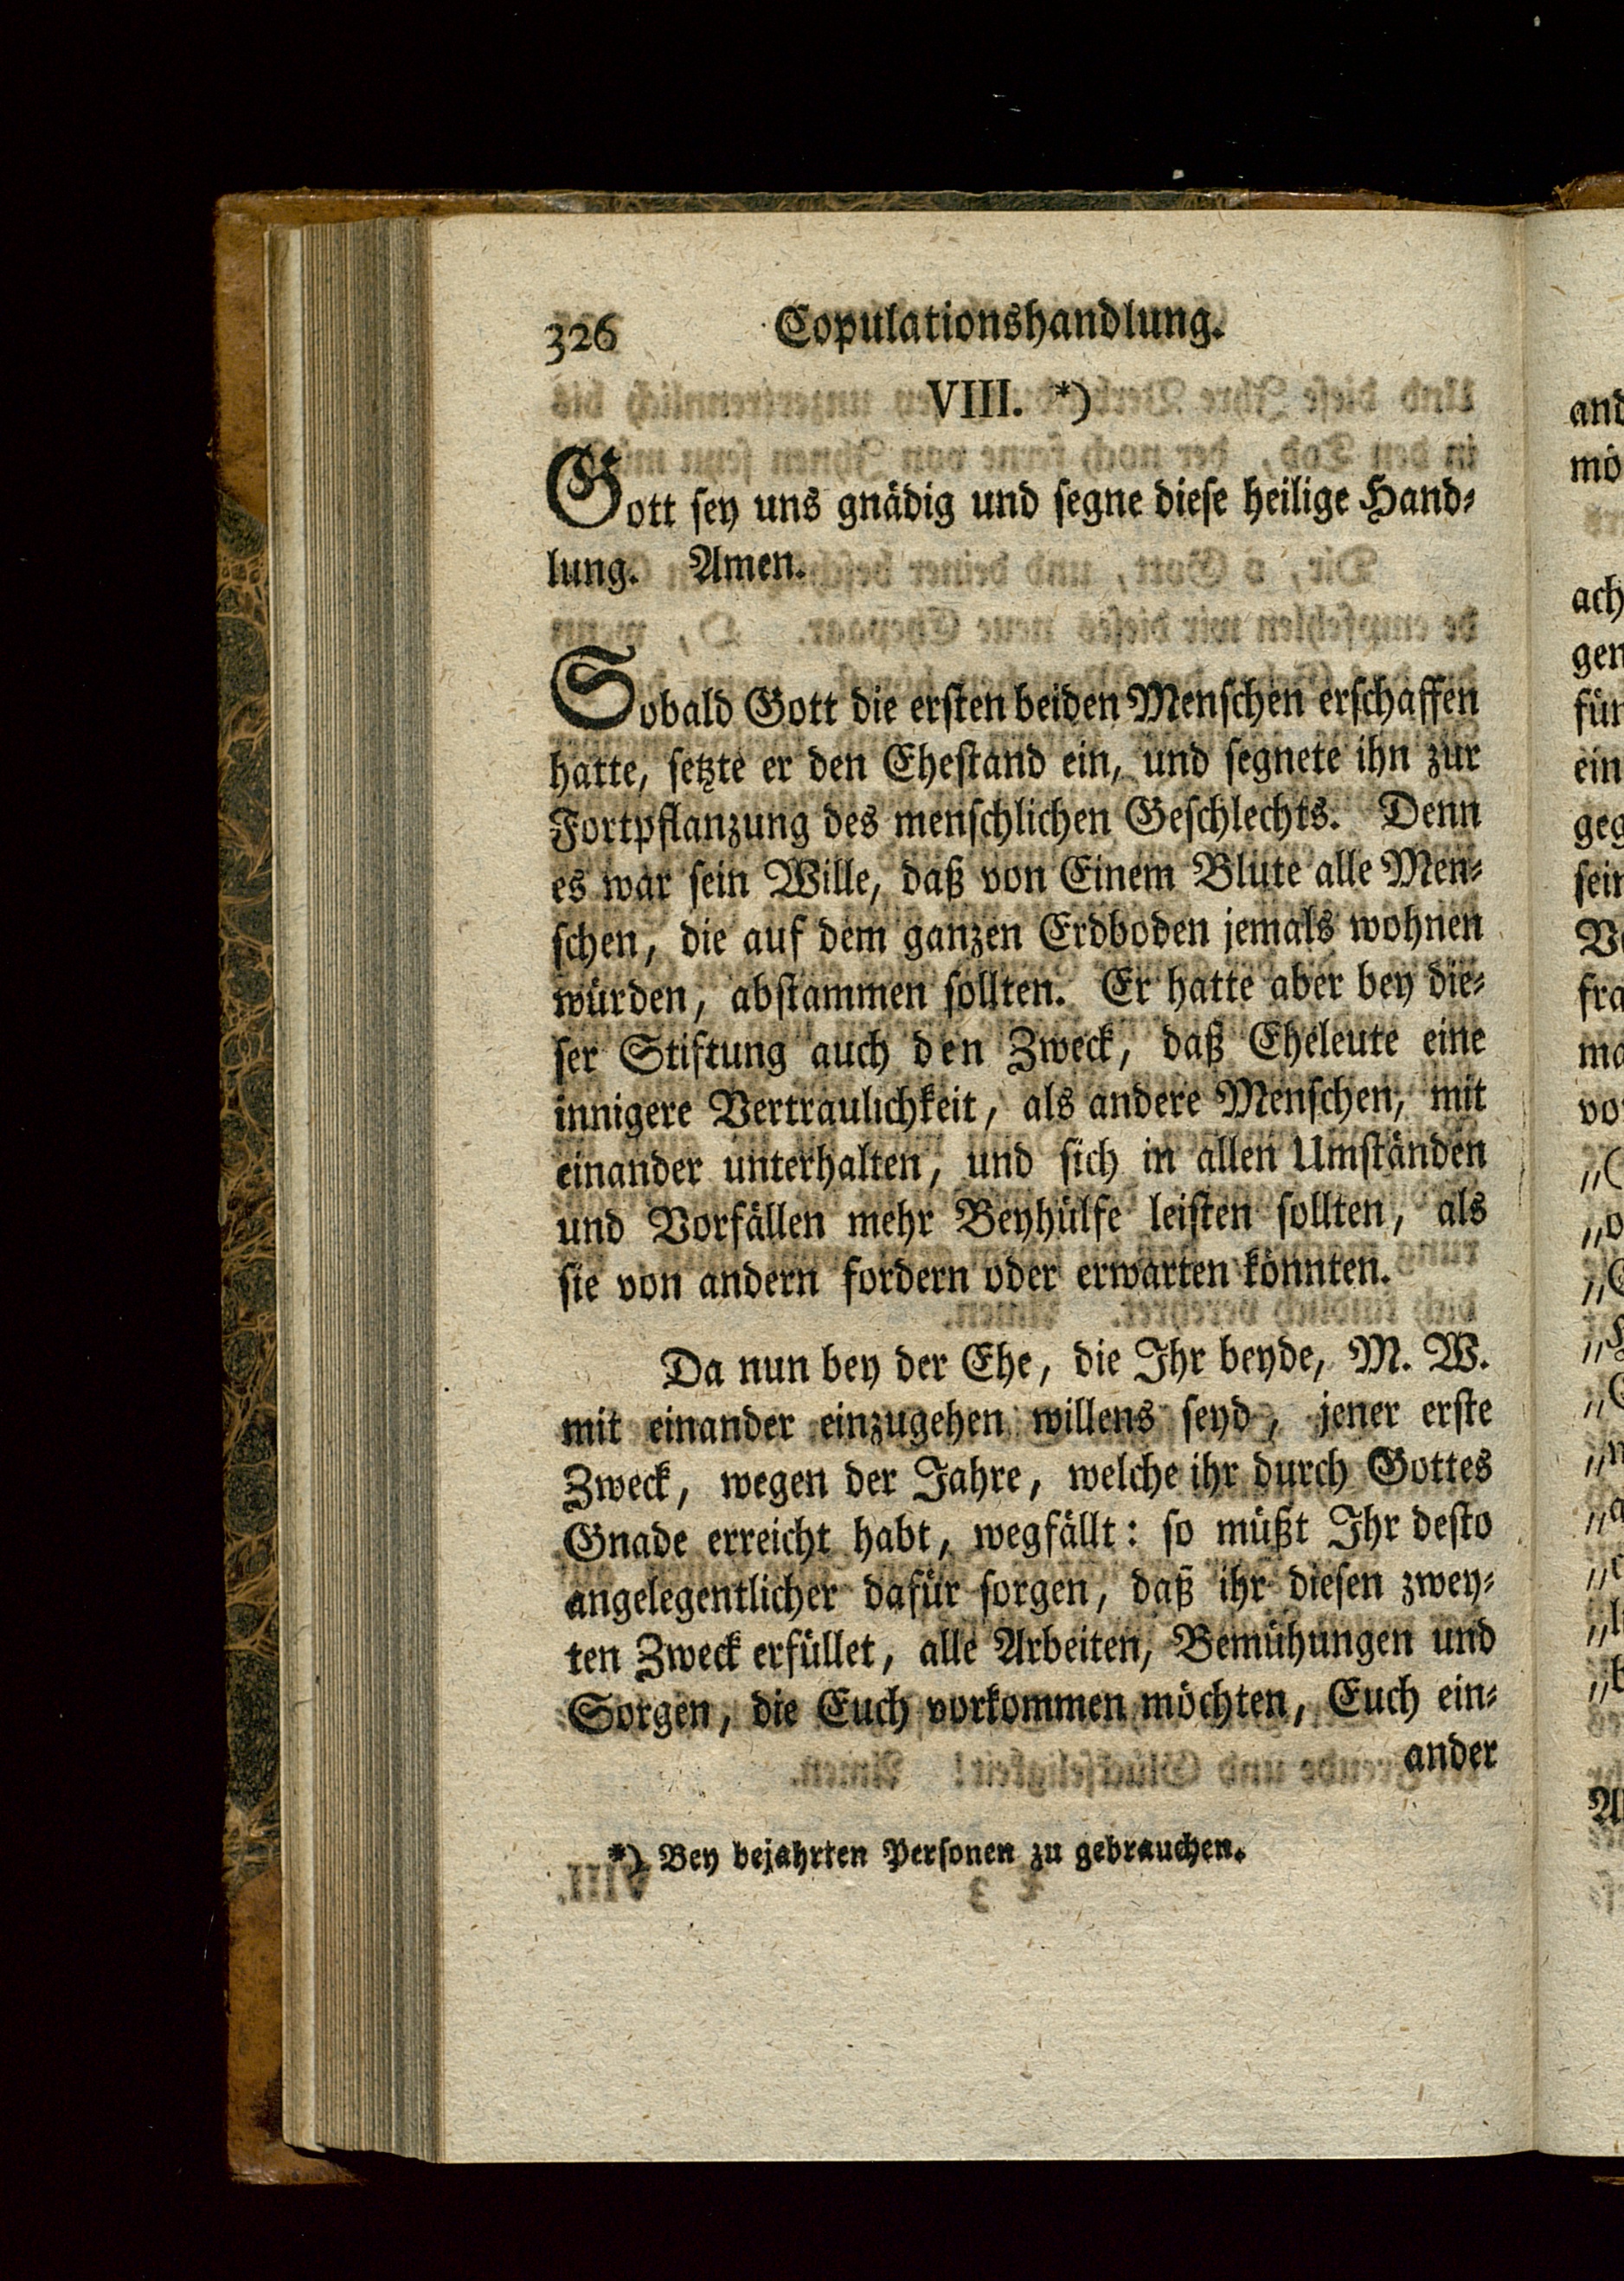 326 Copulationshandlung.
VIII. *)
Gott sey uns gnädig und segne diese heilige Hand-
lung. Amen.
Sobald Gott die ersten beiden Menschen erschaffen
hatte, setzte er den Ehestand ein, und segnete ihn zur
Fortpflanzung des menschlichen Geschlechts. Denn
es war sein Wille, daß von Einem Blute alle Men-
schen, die auf dem ganzen Erdboden jemals wohnen
würden, abstammen sollten. Er hatte aber bey die-
ser Stiftung auch den Zweck, daß Eheleute eine
innigere Vertraulichkeit, als andere Menschen, mit
einander unterhalten, und sich in allen Umständen
und Vorfällen mehr Beyhülfe leisten sollten, als
sie von andern fordern oder erwarten könnten.
Da nun bey der Ehe, die Ihr beyde, M. W.
mit einander einzugehen willens seyd, jener erste
Zweck, wegen der Jahre, welche ihr durch Gottes
Gnade erreicht habt, wegfällt: so müßt Ihr desto
angelegentlicher dafür sorgen, daß ihr diesen zwey-
ten Zweck erfüllet, alle Arbeiten, Bemühungen und
Sorgen, die Euch vorkommen möchten, Euch ein-
ander
*) Bey bejahrten Personen zu gebrauchen.